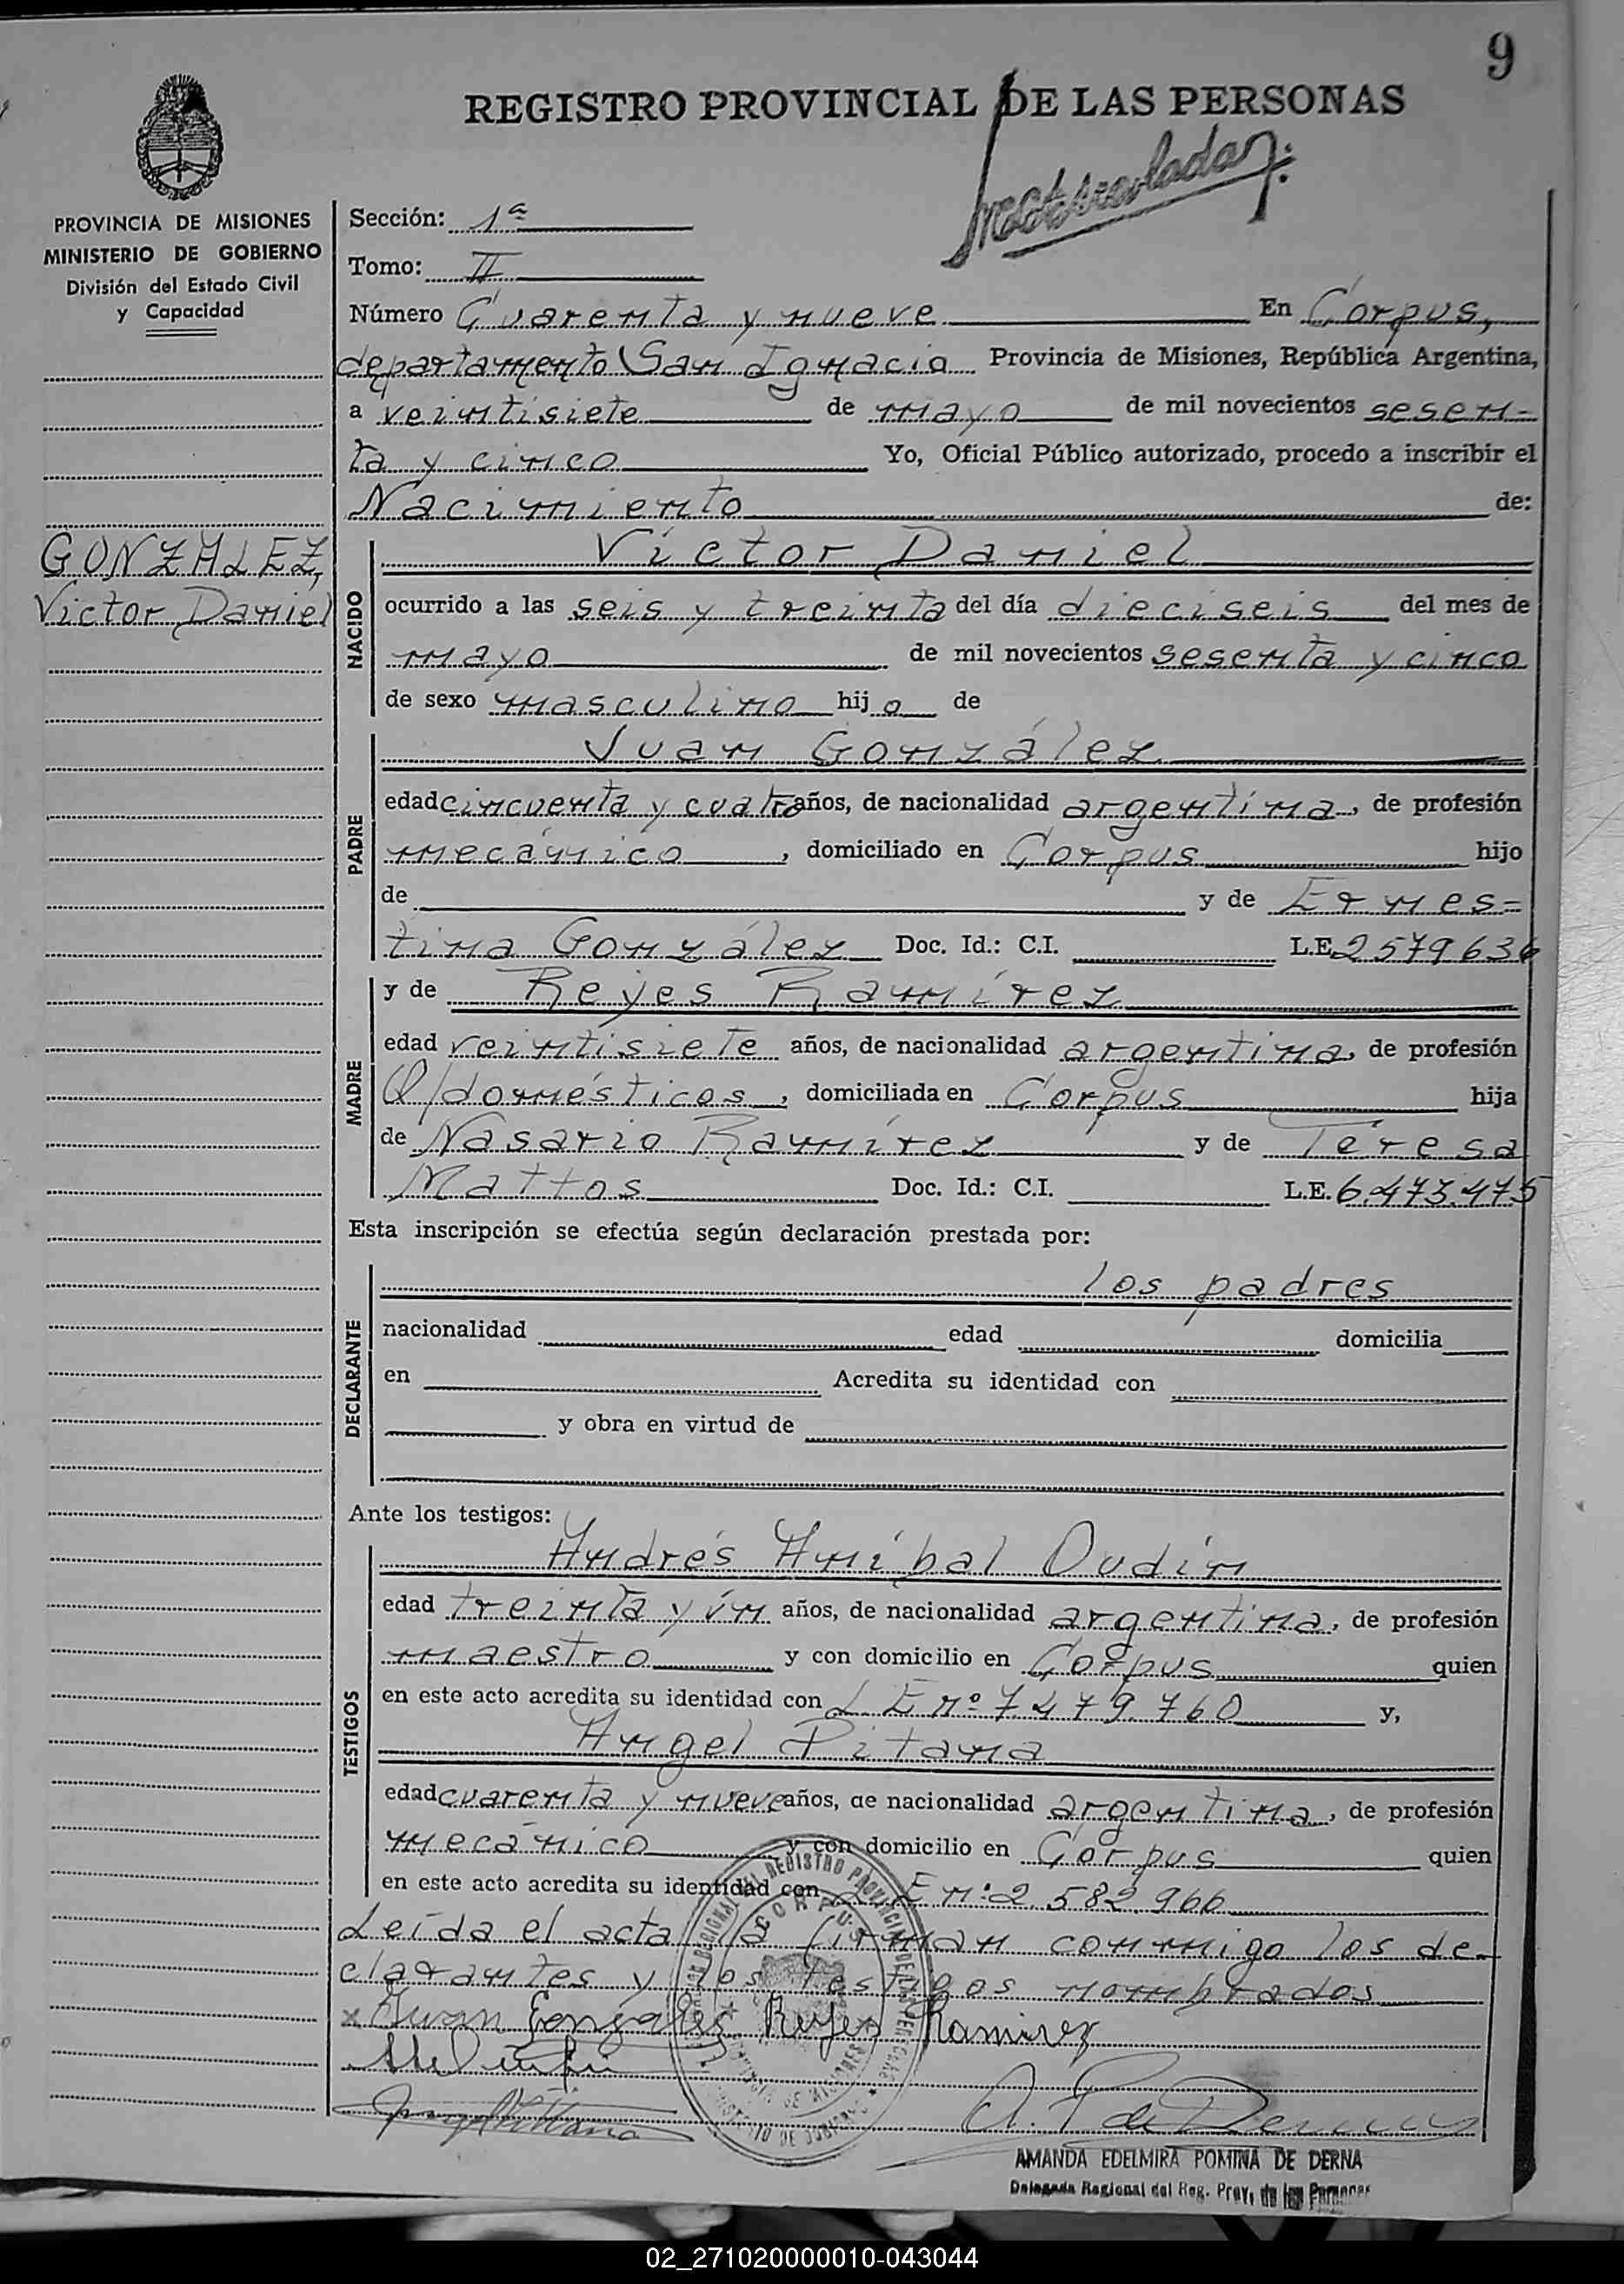 9
REGISTRO PROVINCIAL DE LAS PERSONAS
Matriculado
PROVINCIA DE MISIONES
MINISTERIO DE GOBIERNO
División del Estado Civil
y Capacidad
GONZALEZ,
Victor Daniel
Sección: 1ª
Tomo: II
Número Cuarenta y nueve En Corpus,
departamento San Ignacio Provincia de Misiones, República Argentina,
a veintisiete de mayo de mil novecientos sesen=
ta y cinco Yo, Oficial Público autorizado, procedo a inscribir el
Nacimiento de:
NACIDO
Víctor Daniel
ocurrido a las seis y treinta del día dieciseis del mes de
mayo de mil novecientos sesenta y cinco
de sexo masculino hijo de
PADRE
Juan González
edad cincuenta y cuatro años, de nacionalidad argentina, de profesión
mecánico, domiciliado en Corpus hijo
de y de Ernes=
tina González Doc. Id.: C.I. L.E. 2579636
MADRE
y de Reyes Ramírez
edad veintisiete años, de nacionalidad argentina, de profesión
Q/domésticos, domiciliada en Corpus hija
de Nasario Ramírez y de Teresa
Mattos Doc. Id.: C.I. L.E. 6.473.475
Esta inscripción se efectúa según declaración prestada por:
DECLARANTE
los padres
nacionalidad edad domicilia
en Acredita su identidad con
y obra en virtud de
Ante los testigos:
TESTIGOS
Andrés Aníbal Oudín
edad treinta y ún años, de nacionalidad argentina, de profesión
maestro y con domicilio en Corpus quien
en este acto acredita su identidad con L E nº 7.479.760 y,
Angel Pitana
edad cuarenta y nueve años, de nacionalidad argentina, de profesión
mecánico y con domicilio en Corpus quien
en este acto acredita su identidad con L E nº 2.582.966
Leída el acta la firman conmigo los de-
clarantes y los testigos nombrados
x Juan Gonzales Reyes Ramirez
CORPUS
AMANDA EDELMIRA POMINA DE DERNA
Delegada Regional del Reg. Prov. de las Personas
02_271020000010-043044